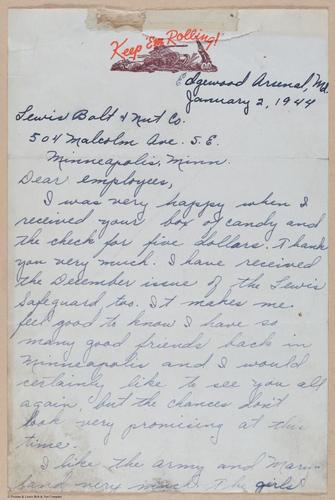 Keep 'Em Rolling!
Edgewood Arsenal, Md.
January 2, 1944
Lewis Bolt & Nut Co.
504 Malcolm Ave. S.E.
Minneapolis, Minn.
Dear employees,
I was very happy when I
received your box of candy and
the check for five dollars. Thank
you very much. I have received
the December issue of the Lewis
Safeguard, too. It makes me
feel good to know I have so
many good friends back in
Minneapolis and I would
certainly like to see you all
again, but the chances don't
look very promising at this
time.
I like the army and Mary-
land very much. The girls